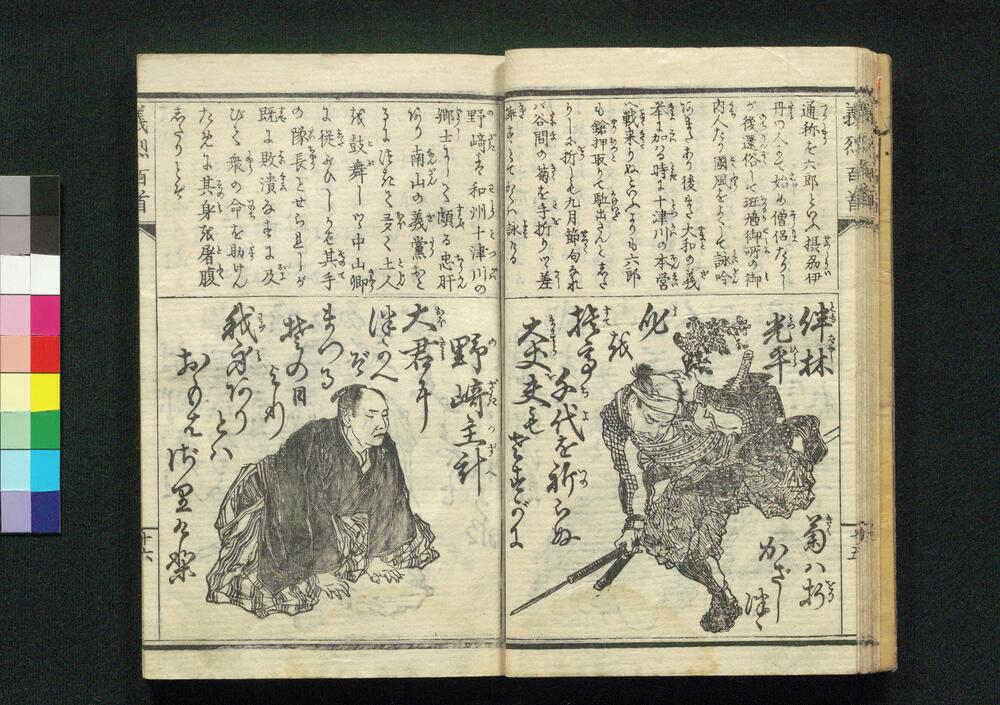 義烈百首
通称を六郎といふ摂州伊
丹の人にて始め僧侶たりし
が後還俗して斑鳩御所の御
内人たり国風をよくして詠吟
あまたあり後また大和の義
挙に加る時に十津川の本営
へ戦来りぬといふよりも六郎
も鎗押取りて駈出さんとした
りしが折しも九月節句なれ
バ谷間の菊を手折りて差
詠
伴林
光平
身を
捨て
千代を祈らぬ
大丈夫も
さすがに
菊ハ折
かざしつゝ
十五
野崎は和州十津川の
郷士にして頗る忠肝
あり南山の義党
土人
を鼓舞しつゝ中山卿
に従ひしかば其手
の隊長とせられしが
既に敗潰なるに及
びて衆の命を助けん
ために其身は屠腹
したりとぞ
野崎主計
大君に
つかへ
ぞ
まつる
その日より
我身ありとハ
おもはざりけり
義烈百首
十六